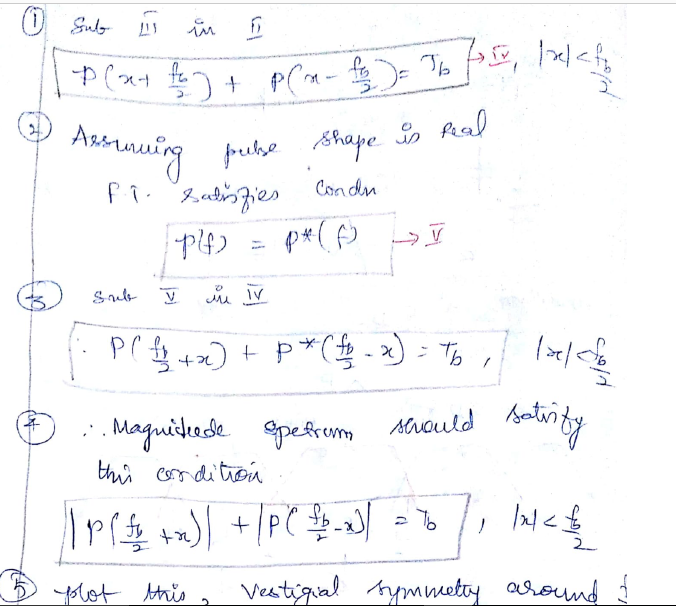 ① Sub III in II
P(x+ fb/2) + P(x- fb/2) = Tb → IV, |x|<fb/2
② Assuming pulse shape is Real
F.T. satisfies Condn
P(f) = P*(f) → V
③ Sub V in IV
∴ P(fb/2 +x) + P*(fb/2 -x) = Tb, |x|<fb/2
④ ∴ Magnitude spectrum should satisfy
this condition
|P(fb/2 +x)| + |P(fb/2 -x)| = Tb, |x|<fb/2
⑤ plot this, Vestigial symmetry around